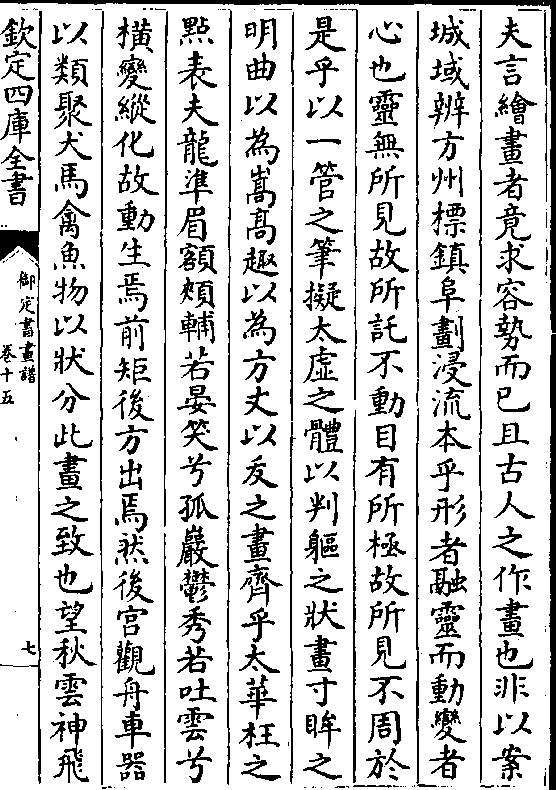 夫言繪畫者竟求容勢而已且古人之作畫也非以案
城域辨方州標鎮阜劃浸流本乎形者融靈而動變者
心也靈無所見故所託不動目有所極故所見不周於
是乎以一管之筆擬太虛之體以判軀之狀畫寸眸之
明曲以為嵩髙趣以為方丈以叐之畫齊乎太華枉之
點表夫龍準眉額頰輔若晏笑兮孤巖鬱秀若吐雲兮
橫變縱化故動生焉前矩後方出焉然後宫觀舟車器
以類聚犬馬禽魚物以狀分此畫之致也望秋雲神飛
欽定四庫全書
御定書畫譜
卷十五
七